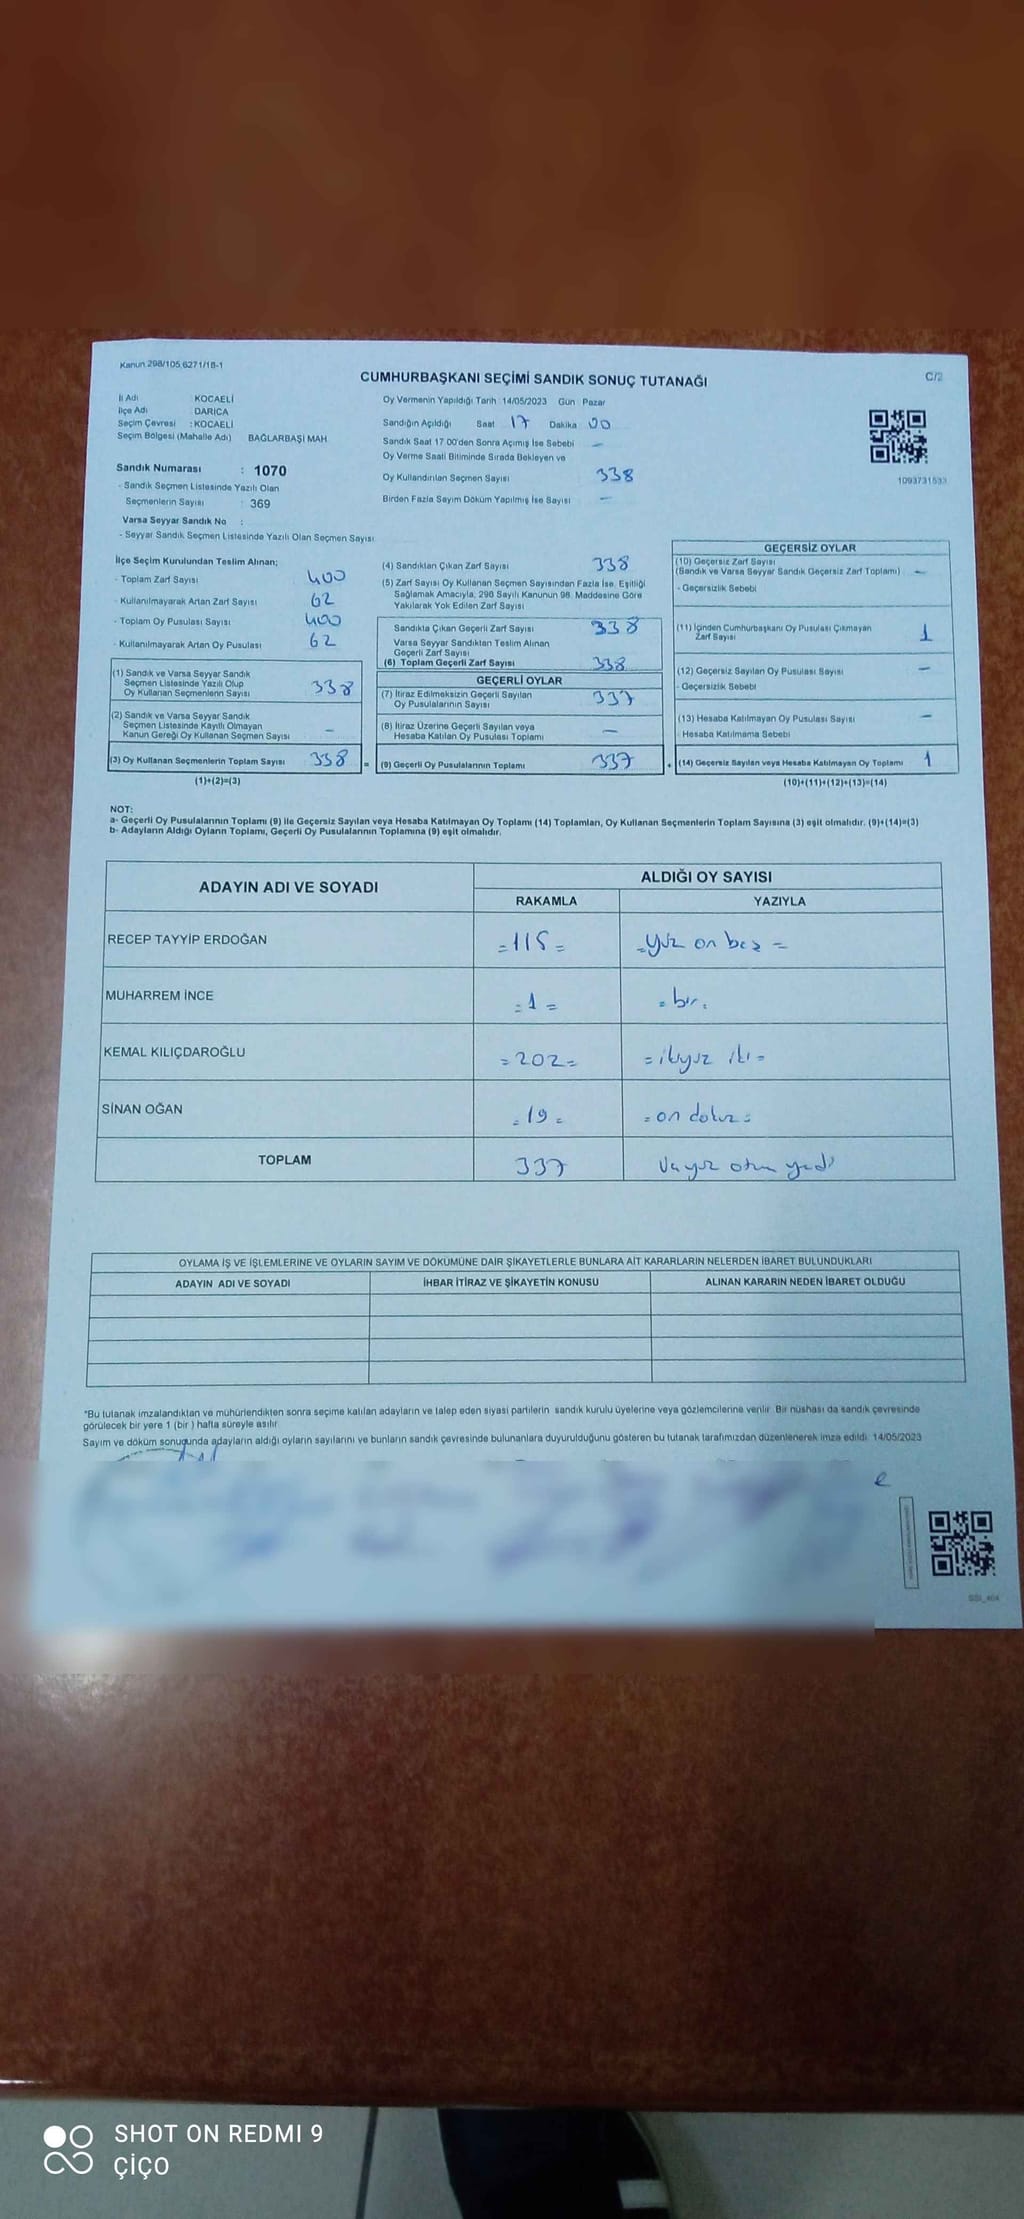 Kanun 298/105,6271/18-1
CUMHURBAŞKANI SEÇİMİ SANDIK SONUÇ TUTANAĞI
C/2
İl Adı : KOCAELİ
İlçe Adı : DARICA
Seçim Çevresi : KOCAELİ
Seçim Bölgesi (Mahalle Adı) BAĞLARBAŞI MAH.
Sandık Numarası : 1070
- Sandık Seçmen Listesinde Yazılı Olan
Seçmenlerin Sayısı : 369
Varsa Seyyar Sandık No :
- Seyyar Sandık Seçmen Listesinde Yazılı Olan Seçmen Sayısı
Oy Vermenin Yapıldığı Tarih :14/05/2023 Gün Pazar
Sandığın Açıldığı Saat 17 Dakika 00
Sandık Saat 17.00'den Sonra Açımış İse Sebebi –
Oy Verme Saati Bitiminde Sırada Bekleyen ve
Oy Kullandırılan Seçmen Sayısı 338
Birden Fazla Sayım Döküm Yapılmış İse Sayısı –
1093731533
İlçe Seçim Kurulundan Teslim Alınan;
- Toplam Zarf Sayısı 400
- Kullanılmayarak Artan Zarf Sayısı 62
- Toplam Oy Pusulası Sayısı 400
- Kullanılmayarak Artan Oy Pusulası 62
(1) Sandık ve Varsa Seyyar Sandık
Seçmen Listesinde Yazılı Olup
Oy Kullanan Seçmenlerin Sayısı 338
(2) Sandık ve Varsa Seyyar Sandık
Seçmen Listesinde Kayıtlı Olmayan
Kanun Gereği Oy Kullanan Seçmen Sayısı –
(3) Oy Kullanan Seçmenlerin Toplam Sayısı 338 =
(1)+(2)=(3)
(4) Sandıktan Çıkan Zarf Sayısı 338
(5) Zarf Sayısı Oy Kullanan Seçmen Sayısından Fazla İse, Eşitliği
Sağlamak Amacıyla, 298 Sayılı Kanunun 98. Maddesine Göre
Yakılarak Yok Edilen Zarf Sayısı
Sandıkta Çıkan Geçerli Zarf Sayısı 338
Varsa Seyyar Sandıktan Teslim Alınan
Geçerli Zarf Sayısı
(6) Toplam Geçerli Zarf Sayısı 338
GEÇERLİ OYLAR
(7) İtiraz Edilmeksizin Geçerli Sayılan
Oy Pusulalarının Sayısı 337
(8) İtiraz Üzerine Geçerli Sayılan veya
Hesaba Katılan Oy Pusulası Toplamı –
(9) Geçerli Oy Pusulalarının Toplamı 337 +
GEÇERSİZ OYLAR
(10) Geçersiz Zarf Sayısı
(Sandık ve Varsa Seyyar Sandık Geçersiz Zarf Toplamı) –
- Geçersizlik Sebebi
(11) İçinden Cumhurbaşkanı Oy Pusulası Çıkmayan
Zarf Sayısı 1
(12) Geçersiz Sayılan Oy Pusulası Sayısı –
- Geçersizlik Sebebi
(13) Hesaba Katılmayan Oy Pusulası Sayısı –
- Hesaba Katılmama Sebebi
(14) Geçersiz Sayılan veya Hesaba Katılmayan Oy Toplamı 1
(10)+(11)+(12)+(13)=(14)
NOT:
a- Geçerli Oy Pusulalarının Toplamı (9) ile Geçersiz Sayılan veya Hesaba Katılmayan Oy Toplamı (14) Toplamları, Oy Kullanan Seçmenlerin Toplam Sayısına (3) eşit olmalıdır. (9)+(14)=(3)
b- Adayların Aldığı Oyların Toplamı, Geçerli Oy Pusulalarının Toplamına (9) eşit olmalıdır.
ADAYIN ADI VE SOYADI
ALDIĞI OY SAYISI
RAKAMLA YAZIYLA
RECEP TAYYİP ERDOĞAN =115= =yüz on beş=
MUHARREM İNCE =1= =bir=
KEMAL KILIÇDAROĞLU =202= =ikiyüz iki=
SİNAN OĞAN =19= =on dokuz=
TOPLAM 337 üçyüz otuz yedi
OYLAMA İŞ VE İŞLEMLERİNE VE OYLARIN SAYIM VE DÖKÜMÜNE DAİR ŞİKAYETLERLE BUNLARA AİT KARARLARIN NELERDEN İBARET BULUNDUKLARI
ADAYIN ADI VE SOYADI İHBAR İTİRAZ VE ŞİKAYETİN KONUSU ALINAN KARARIN NEDEN İBARET OLDUĞU
*Bu tutanak imzalandıktan ve mühürlendikten sonra seçime katılan adayların ve talep eden siyasi partilerin sandık kurulu üyelerine veya gözlemcilerine verilir. Bir nüshası da sandık çevresinde
görülecek bir yere 1 (bir ) hafta süreyle asılır.
Sayım ve döküm sonucunda adayların aldığı oyların sayılarını ve bunların sandık çevresinde bulunanlara duyurulduğunu gösteren bu tutanak tarafımızdan düzenlenerek imza edildi. 14/05/2023
SHOT ON REDMI 9
ÇİÇO